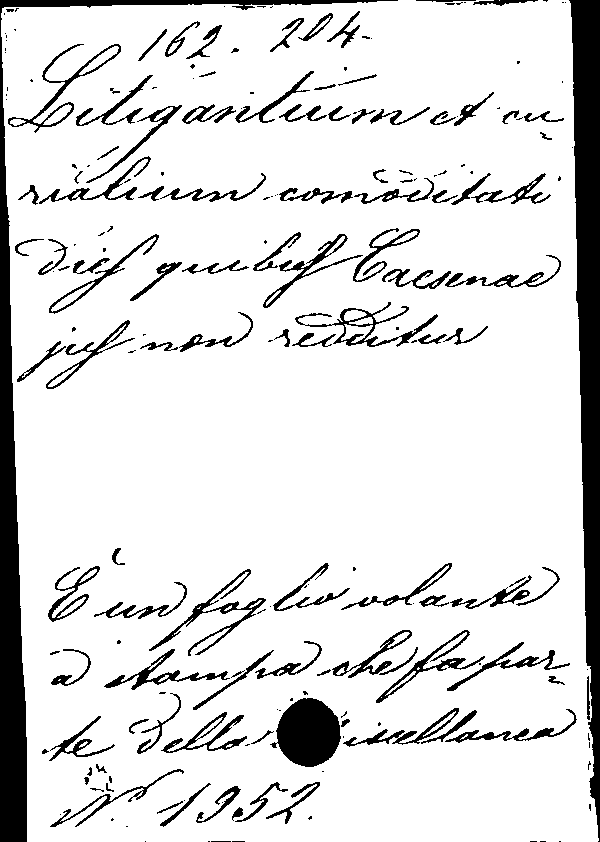 162. 204.
Litigantium et cu-
rialium comoditati
dies quibus Caesenae
jus non redditur
È un foglio volante
a stampa che fa par-
te della Miscellanea
N.º 1952.